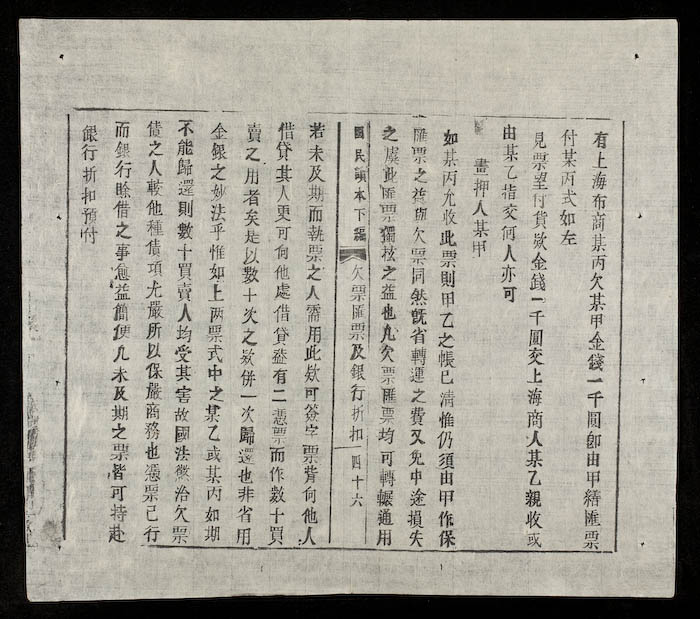 有上海布商某丙欠某甲金錢一千圓卽由甲繕匯票
付某丙式如左
見票望付貨欵金錢一千圓交上海商人某乙親收或
由某乙指交何人亦可
畫押人某甲
如某丙允收此票則甲乙之帳已清惟仍須由甲作保
匯票之益與欠票同然旣省轉運之費又免中途損失
之虞此匯票獨核之益也凡欠票匯票均可轉輾通用
國民讀本下編 欠票匯票及銀行折扣 四十六
若未及期而執票之人需用此欵可簽字票背向他人
借貸其人更可向他處借貸益有二憑票而作數十買
賣之用者矣是以數十次之欵併一次歸還也非省用
金銀之妙法乎惟如上兩票式中之某乙或某丙如期
不能歸還則數十買賣人均受其害故國法懲治欠票
債之人較他種債項尤嚴所以保嚴商務也憑票已行
而銀行賒借之事愈益簡便凡未及期之票皆可持赴
銀行折扣預付